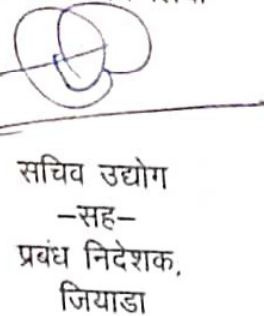 सचिव उद्योग
–सह–
प्रबंध निदेशक,
जियाडा